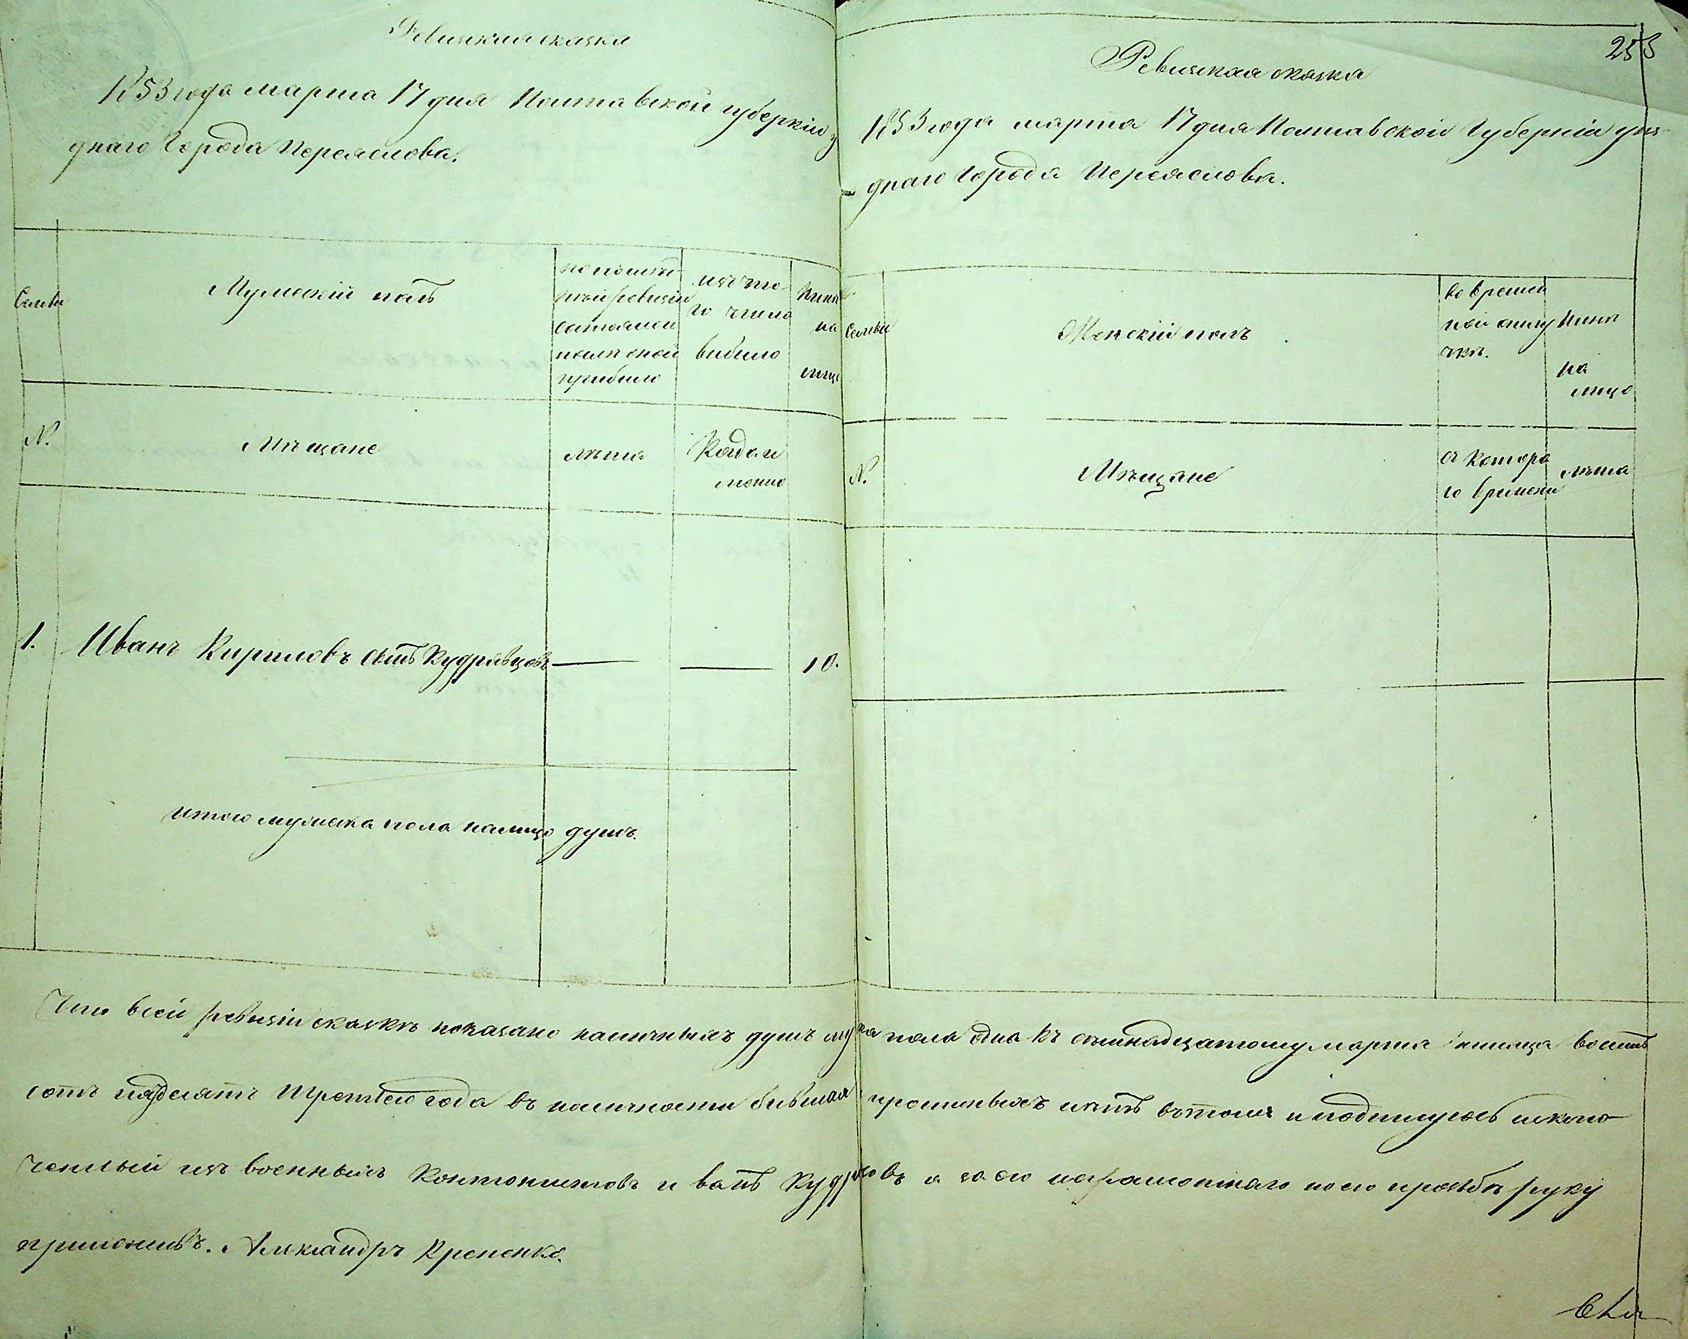 Ревизкая сказка
1853 года марта 17 дня Полтавской губернии у
зднаго Города Переяслова.
Семьи
Мужеский полъ
по последней ревизии состояло и после оной прибыло
изъ того числа выбыло
Ныне на лицо
№.
Мѣщане
лѣта
Когда именно
1. Иванъ Кириловъ сынъ Кудрявцовъ — — 10.
итого мужеска пола налицо душъ.
253
Ревизкая сказка
1853 года марта 17 дня Полтавской Губернии уез-
днаго Города Переяслова.
Семьи
Женский полъ
во временной отлучке.
Ныне на лицо
№.
Мѣщане
съ котораго времени
лѣта
Что въ сей ревизкой сказкѣ показано наличныхъ душъ мужеска пола одна къ семнадцатому марта месяца восемь
сотъ пядесятъ третьего года въ наличности бывшая прописныхъ нетъ въ томъ и подписуюсь исклю
ченный изъ военныхъ Кантонистовъ Иванъ Кудрявцовъ а за его неграмотнаго по его прозьбе руку
приложилъ. Александръ Крепенко.